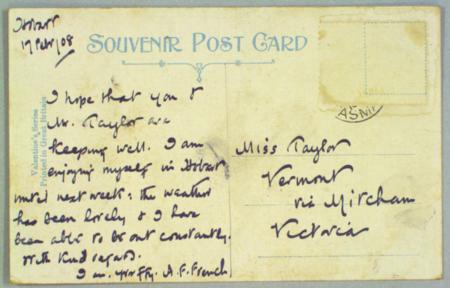 Hobart
17 Feb/08
SOUVENIR POST CARD
Valentine's Series
Printed in Great Britain
ASM
I hope that you &
Mr. Taylor are
keeping well. I am
enjoying myself in Hobart
until next week: the weather
has been lovely & I have
been able to be out constantly.
With kind regards.
I am. A. F. French
Miss Taylor
Vermont
via Mitcham
Victoria